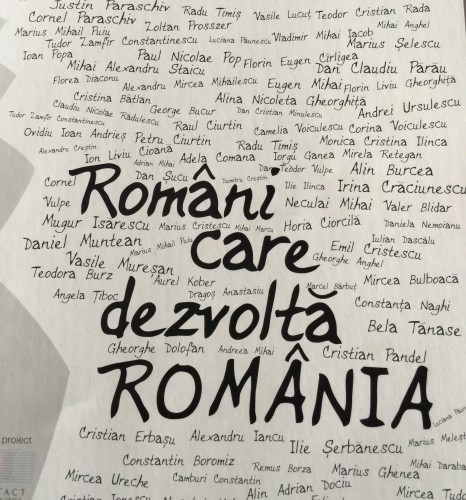 Justin Paraschiv Radu Timiș Vasile Lucuț Teodor Cristian Rada
Cornel Paraschiv Zoltan Prosszer Mihai Anghel
Marius Mihail Puiu Luciana Paunescu Vladimir Mihai Iacob
Tudor Zamfir Constantinescu Marius Șelescu
Ioan Popa Paul Nicolae Pop Florin Eugen Cîrligea
Mihai Alexandru Staicu Dan Claudiu Părău
Florea Diaconu Alexandru Mircea Mihăilescu Eugen Mihai Florin Liviu Gheorghiță
Cristina Bâtlan Alina Nicoleta Gheorghiță
Claudiu Nicolae Rădulescu George Bucur Dan Cristian Minulescu Andrei Ursulescu
Tudor Zamfir Constantinescu Raul Ciurtin Camelia Voiculescu Corina Voiculescu
Ovidiu Ioan Andrieș Petru Ciurtin Radu Timiș Monica Cristina Ilinca
Alexandru Creștin Cioana
Ion Liviu Adrian Mihai Adela Comana Iorgu Ganea Mirela Retegan
Cornel Dan Șucu Dumitru Creștin Dan Teodor Vulpe Alin Burcea
Români
Vulpe Ilie Ilinca Irina Crăciunescu
Neculai Mihai Valer Blidar
Mugur Isărescu Marius Cristescu Mihai Marcu Horia Ciorcilă Daniela Nemoianu
Daniel Muntean Marius Mihail Puiu care Emil Cristescu Iulian Dascălu
Vasile Mureșan Gheorghe Anghel
Teodora Burz Aurel Kober Marcel Bărbuț Mircea Bulboacă
Angela Țiboc Dragoș Anastasiu Constanța Naghi
dezvoltă
Bela Tănase
Gheorghe Dolofan Andreea Mihai Cristian Pandel
ROMÂNIA
Cristian Erbașu Alexandru Iancu Ilie Șerbănescu
proiect
Constantin Boromiz Remus Borza Marius Ghenea
Mircea Ureche Camburi Constantin
Alin Adrian Dociu